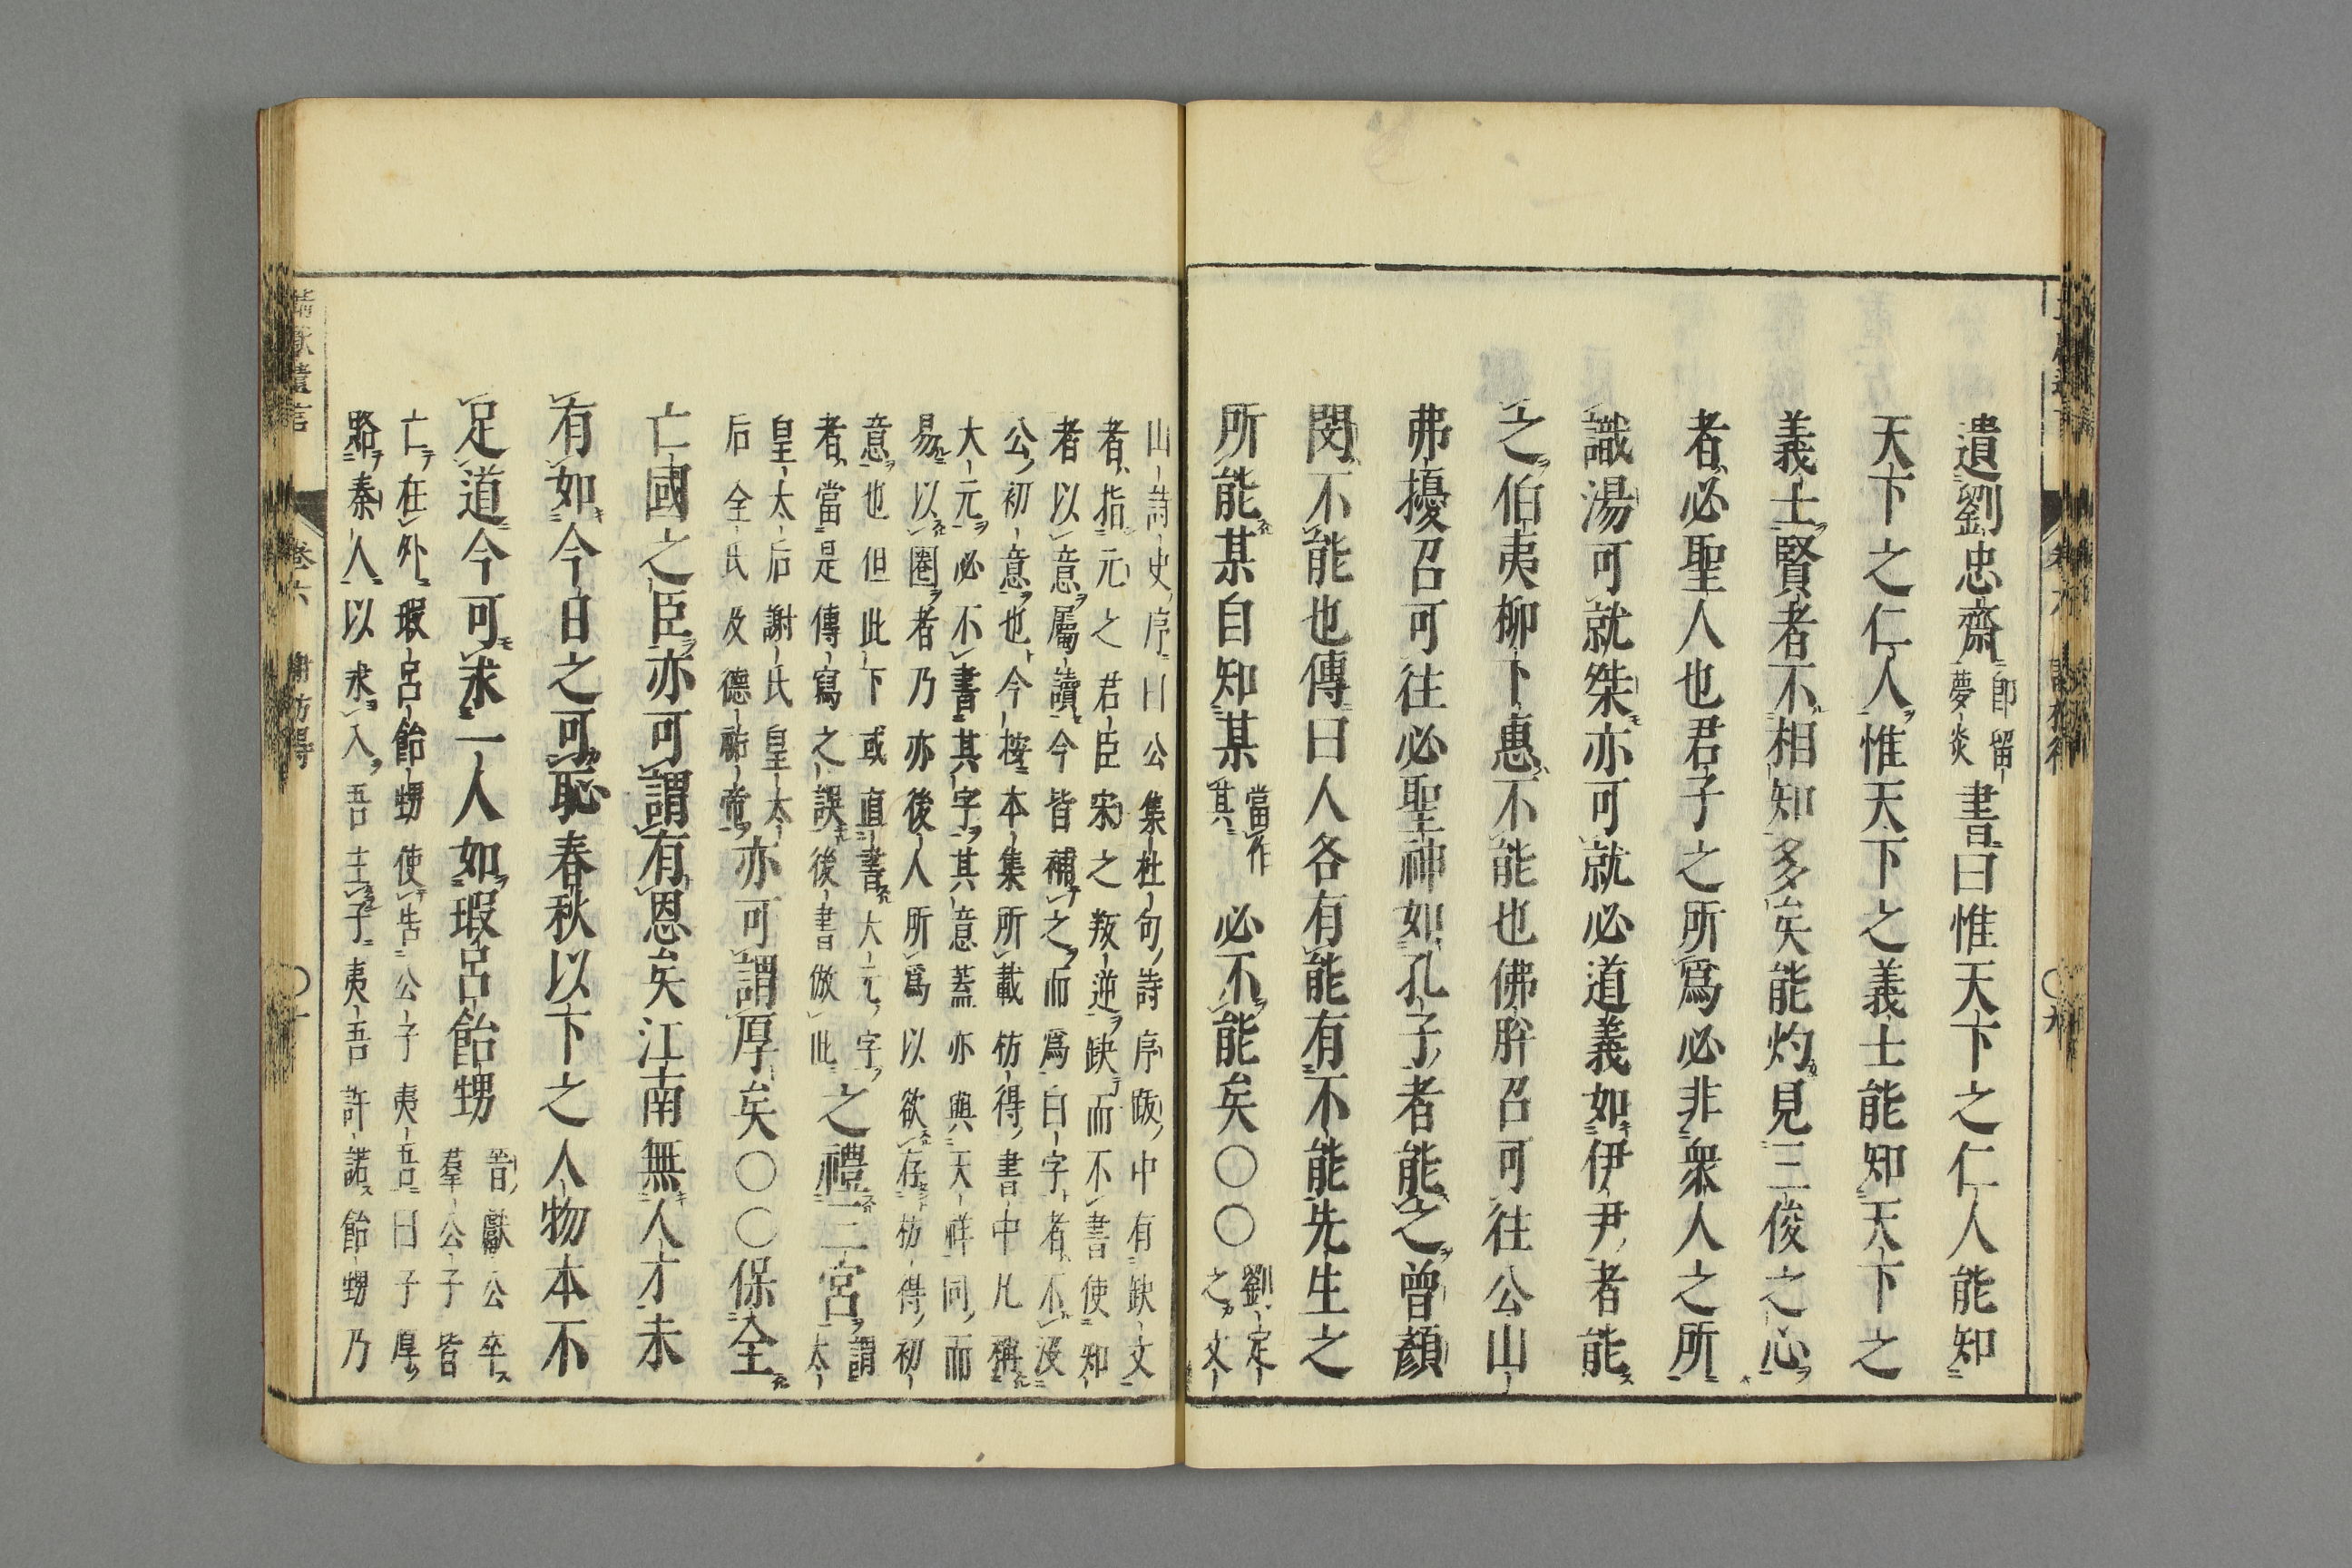 遺劉忠齋即留夢炎書曰惟天下之仁人能知
天下之仁人惟天下之義士能知天下之
義士賢者不相知多矣能灼見三俊之心
者必聖人也君子之所爲必非衆人之所
識湯可就桀亦可就必道義如伊尹者能
之伯夷柳下惠不能也佛肸召可往公山
弗擾召可往必聖神如孔子者能之曾顏
閔不能也傳曰人各有能有不能先生之
所能某自知某當作其必不能矣〇〇劉定之文
山詩史序曰公集杜句詩序䟦中有缺文
者指元之君臣宋之叛逆缺而不書使知
者以意屬讀今皆補之而爲白字者不没
公初意也今按本集所載枋得書中凡稱
大元必不書其字其意蓋亦與天祥同而
易以圈者乃亦後人所爲以欲存枋得初
意也但此下或直書大元字
者當是傳寫之誤後書倣此之禮三宮謂太
皇太后謝氏皇太
后全氏及德祐帝亦可謂厚矣〇〇保全
亡國之臣亦可謂有恩矣江南無人才未
有如今日之可恥春秋以下之人物本不
足道今可求一人如瑕呂飴甥昔獻公卒羣公子皆
亡在外瑕呂飴甥使告公子夷吾曰子厚
賂秦人以求入吾主子夷吾許諾飴甥乃
靖獻遺言 卷六 謝枋得 〇十
卷六 謝枋得 〇九